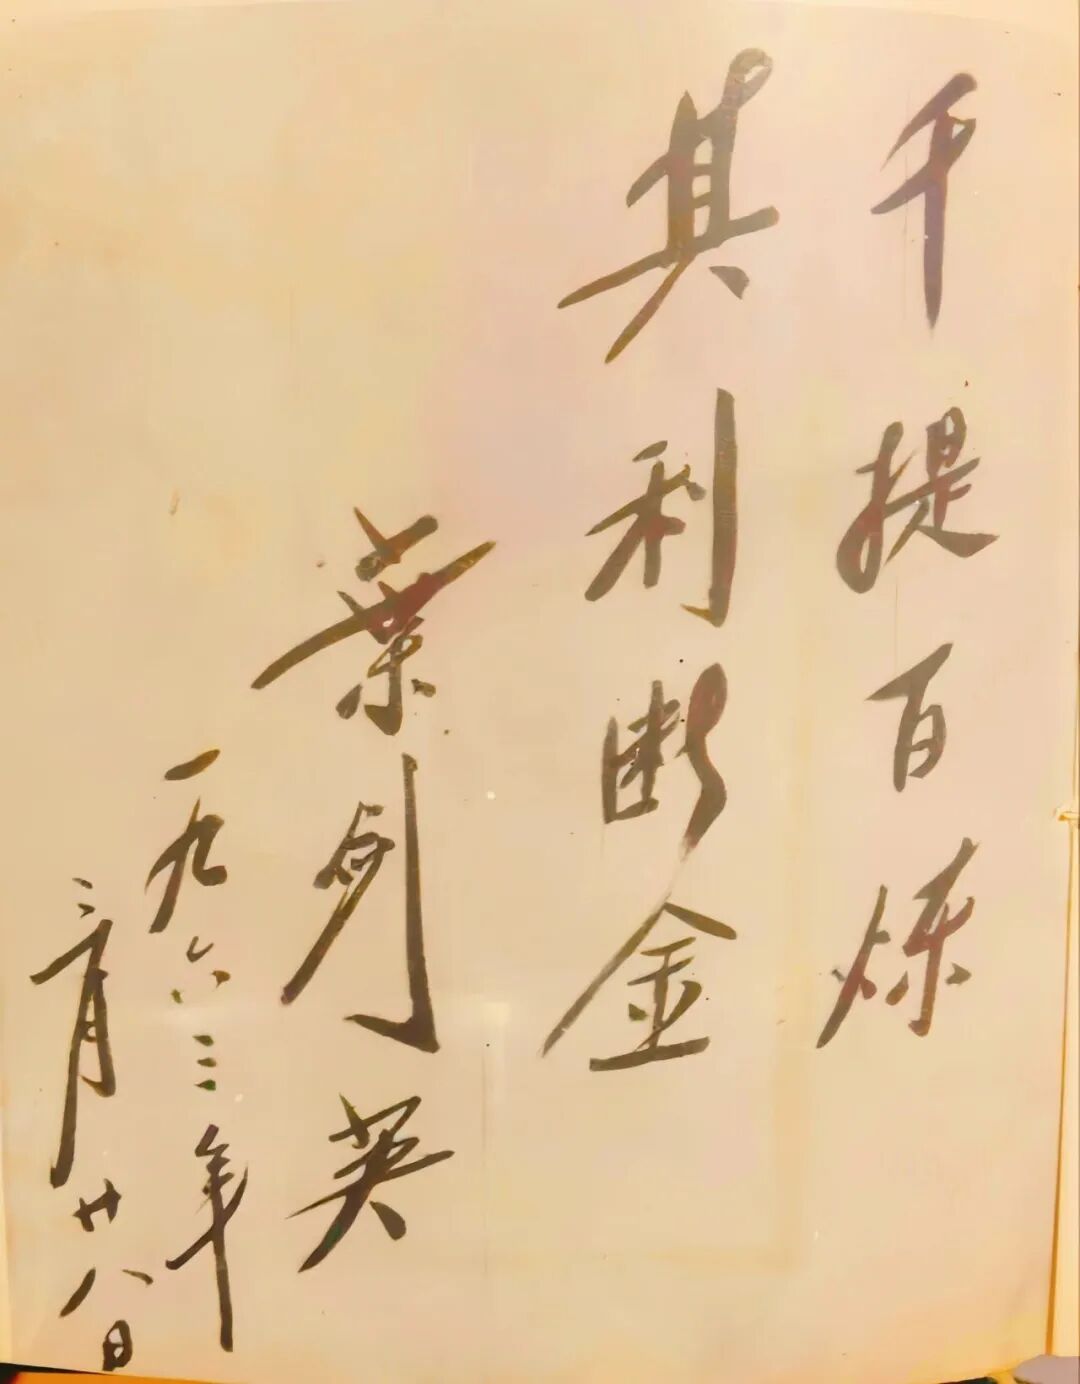 千提百炼
其利断金
葉剑英
一九六三年
三月廿八日